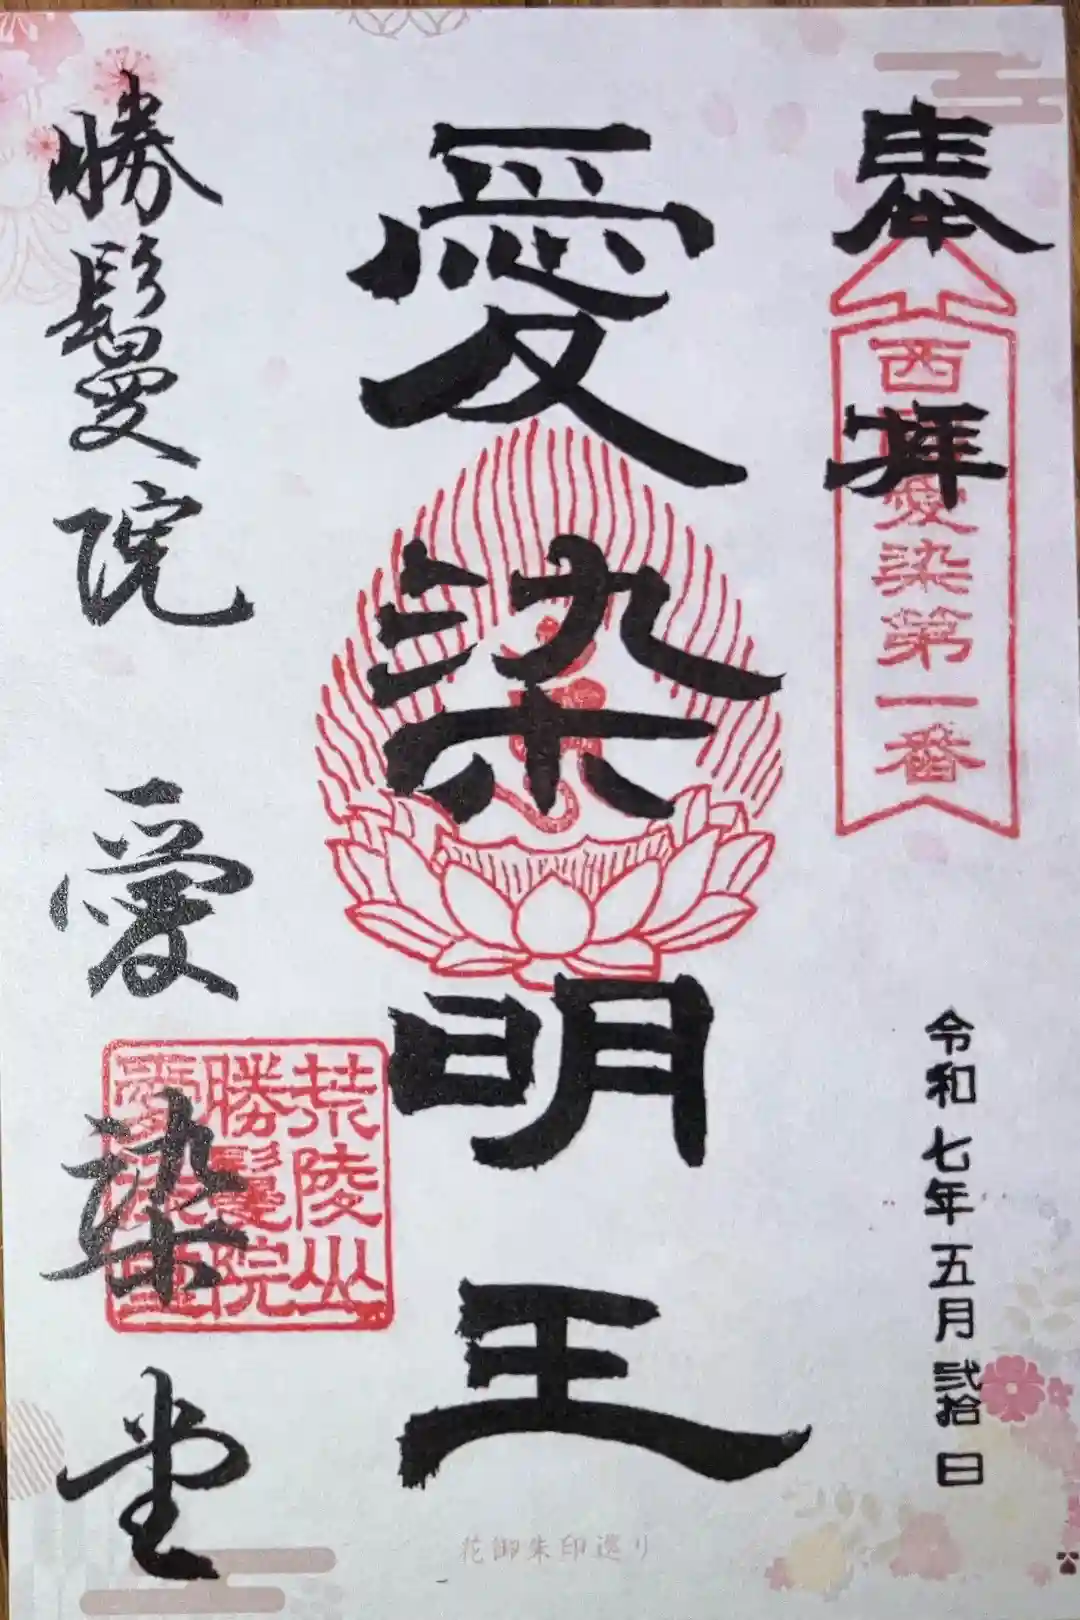 奉拝
西國愛染第一番
令和七年五月弐拾日
愛染明王
荒陵山
勝鬘院
愛染堂
勝鬘院 愛染堂
花御朱印巡り